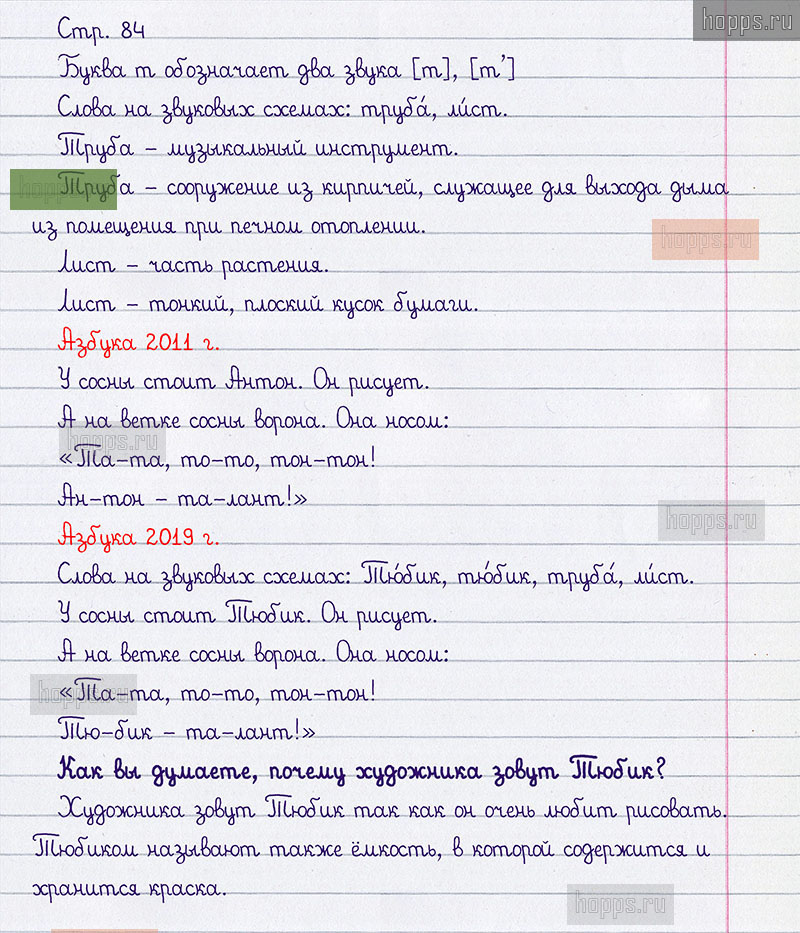 hopps.ru
Стр. 84
Буква т обозначает два звука [т], [т']
Слова на звуковых схемах: труба́, ли́ст.
Труба – музыкальный инструмент.
Труба – сооружение из кирпичей, служащее для выхода дыма
из помещения при печном отоплении.
hopps.ru
Лист – часть растения.
Лист – тонкий, плоский кусок бумаги.
Азбука 2011 г.
У сосны стоит Антон. Он рисует.
А на ветке сосны ворона. Она носом:
hopps.ru
«Та-та, то-то, тон-тон!
Ан-тон – та-лант!»
hopps.ru
Азбука 2019 г.
Слова на звуковых схемах: Тю́бик, тю́бик, труба́, ли́ст.
У сосны стоит Тюбик. Он рисует.
А на ветке сосны ворона. Она носом:
«Та-та, то-то, тон-тон!
Тю-бик – та-лант!»
Как вы думаете, почему художника зовут Тюбик?
Художника зовут Тюбик так как он очень любит рисовать.
Тюбиком называют также ёмкость, в которой содержится и
хранится краска.
hopps.ru